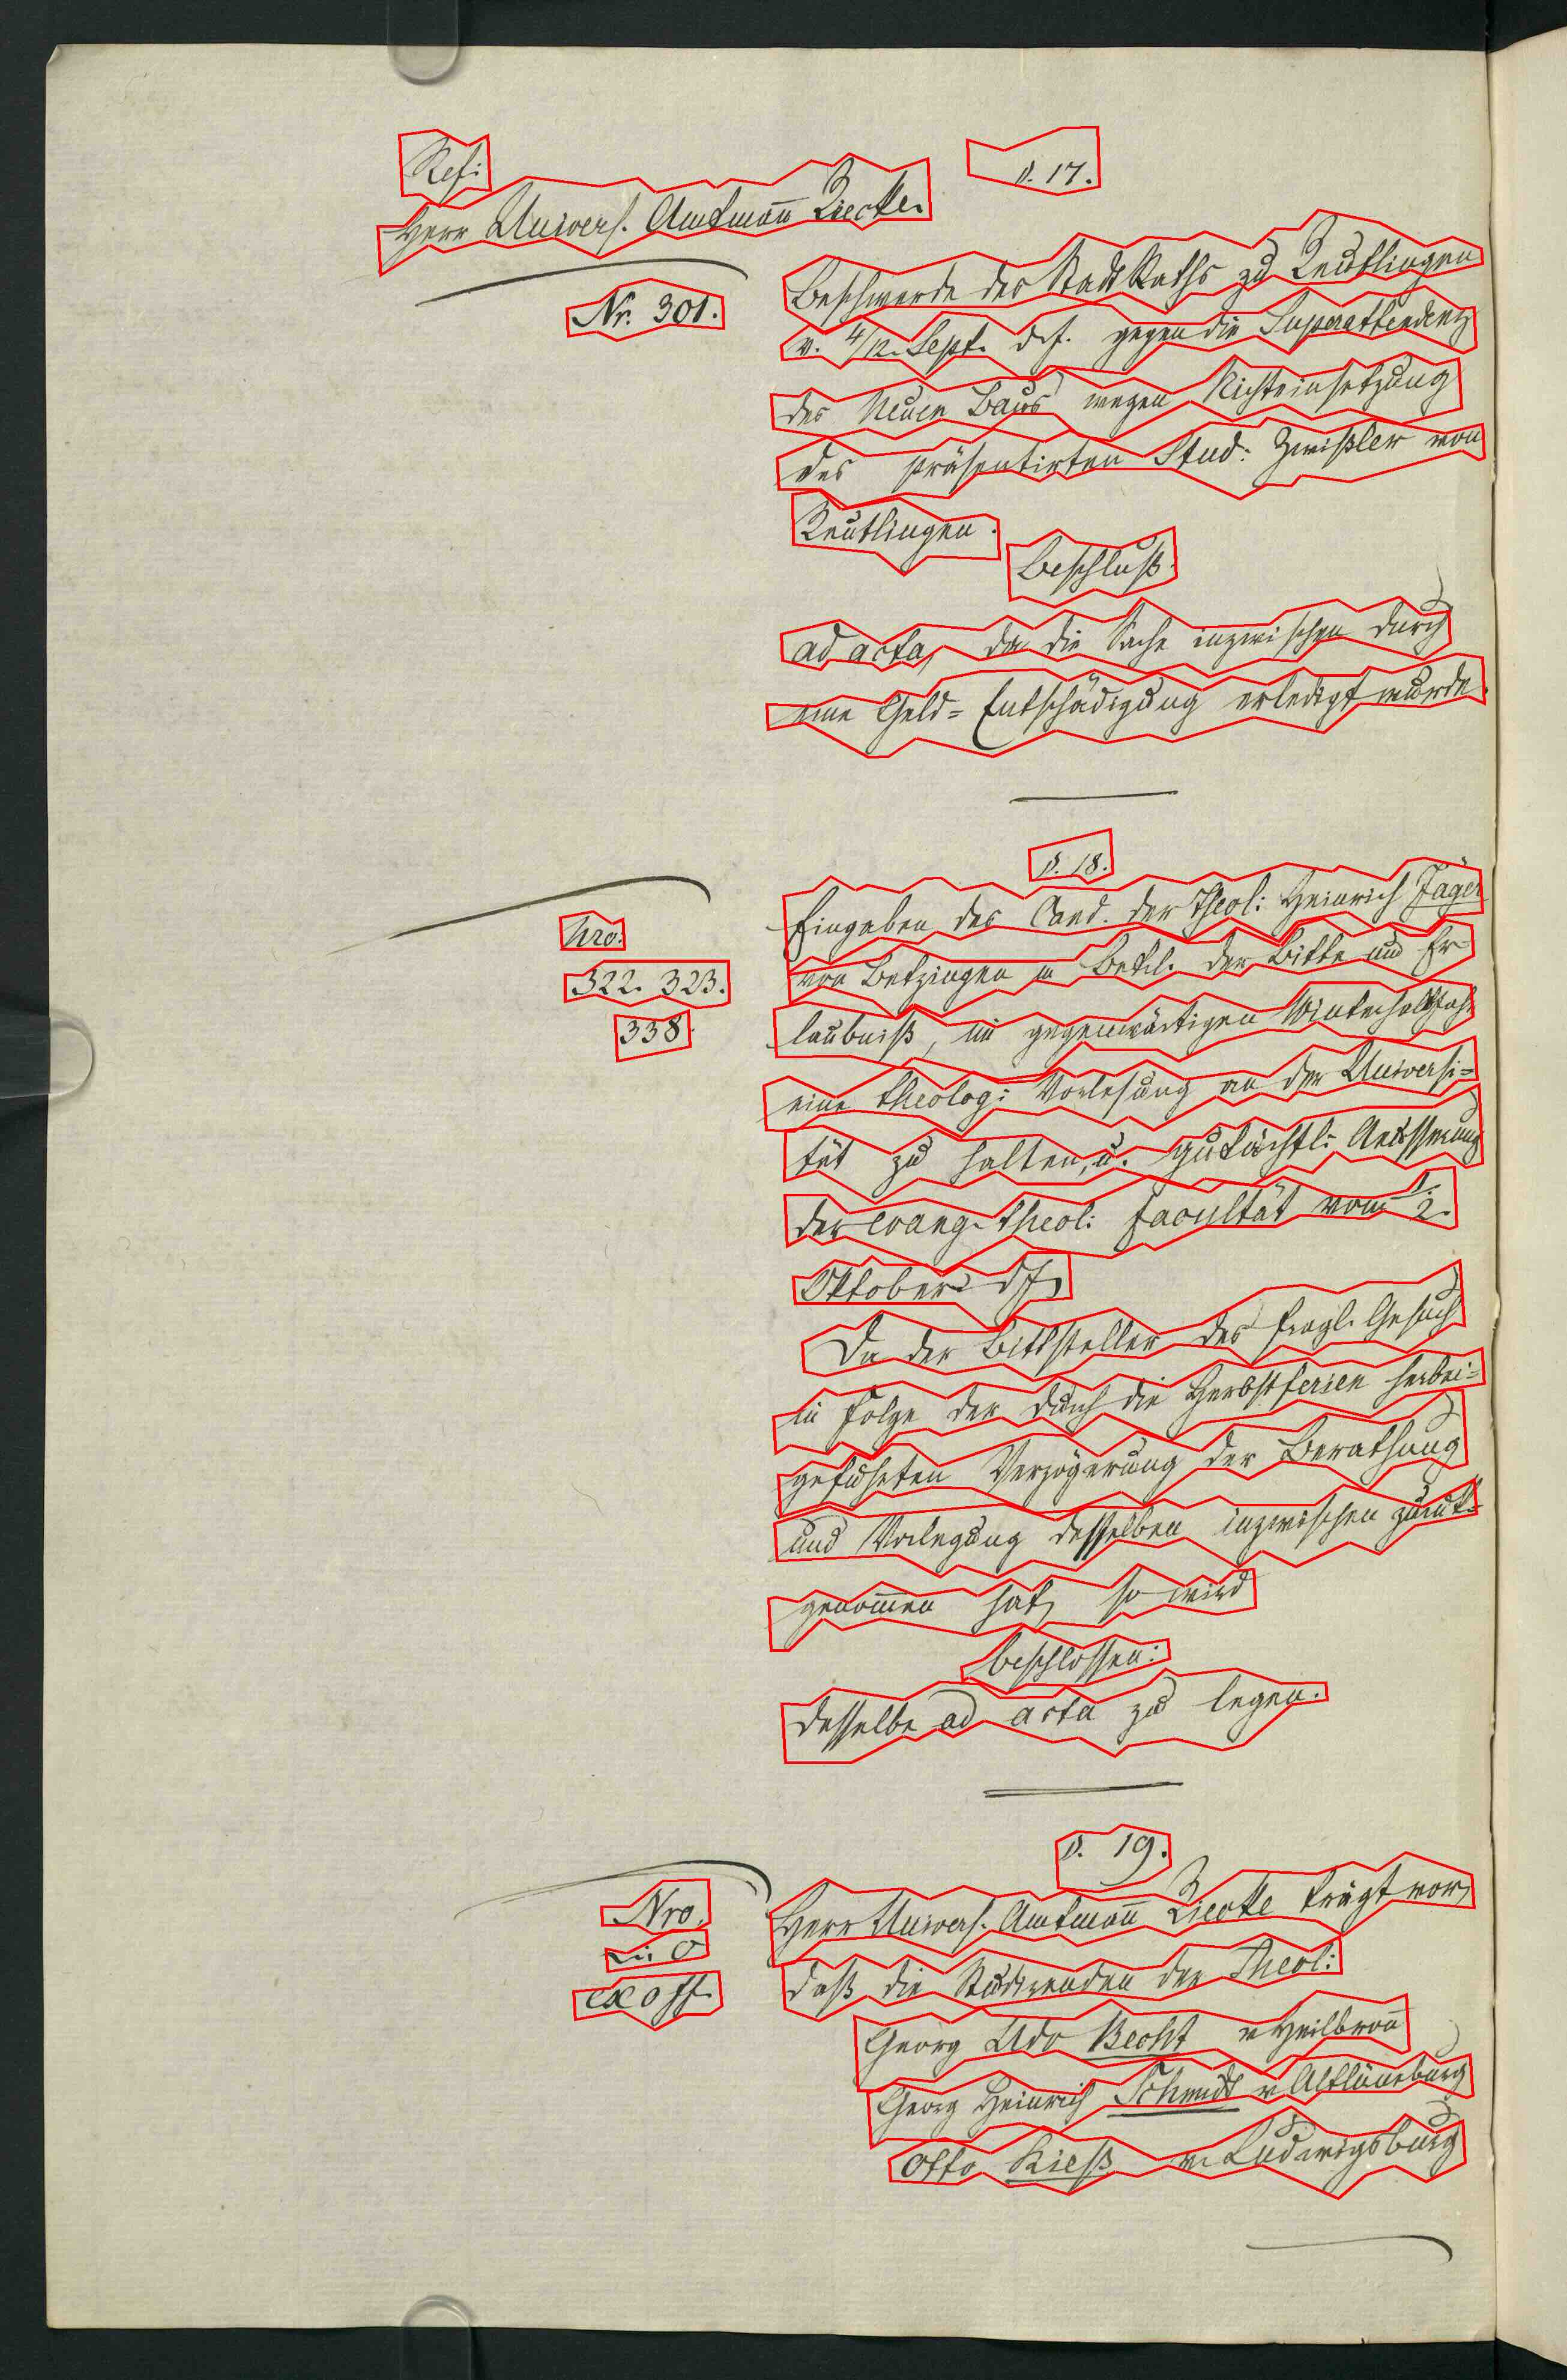 Ref:
§. 17.
Herr Univers. Amtmañ Riecke.
Nr. 301.
Beschwerde des StadtRaths zu Reutlingen
v. 4/12. Sept. d. J. gegen die Superattendenz
des Neuen Baus wegen Nichteinsetzung
des präsentirten Stud: Zwißler von
Reutlingen.
Beschluß.
ad acta, da die Sache inzwischen durch
eine Geld= Entschädigung erledigt wurde.
§. 18.
Eingaben des Cand. der Theol: Heinrich Jäger
Nro.
von Betzingen in Betel. der Bitte um Er-
322. 323.
laubniß, im gegenwärtigen Winterhalbjahr
338.
eine theolog: Vorlesung an der Universi=
tät zu halten, u. gutächtl: Aeusserung
der evang. theol: Facultät vom 1/2.
Oktober d. J.
Da der Bittsteller das fragl. Gesuch
in Folge der durch die Herbstferien herbei=
geführten Verzögerung der Berathung
und Vorlegung desselben inzwischen zurük=
genom̅en hat, so wird
beschlossen:
dasselbe ad acta zu legen.
§. 19.
Herr Univers. Amtmañ Riecke trägt vor,
Nro.
daß die Studirenden der Theol:
ex off.
Georg Udo Becht v Heilbroñ
Georg Heinrich Schmidt v Altlüneburg
Otto Kieß v. Ludwigsburg